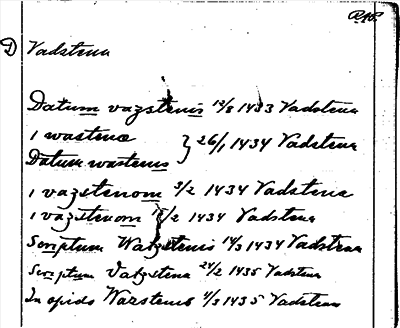 RAP.
D Vadstena
Datum vazstenis 12/8 1433 Vadstena
i wastena } 26/1 1434 Vadstena
Datum wastenis
i vazstenom 3/2 1434 Vadstena
i vazstenom /2 1434 Vadstena
Scriptum Wazstenis 14/3 1434 Vadstena
Scriptum Vatzstena 24/2 1435 Vadstena
In opido Wazstenis 1/3 1435 Vadstena